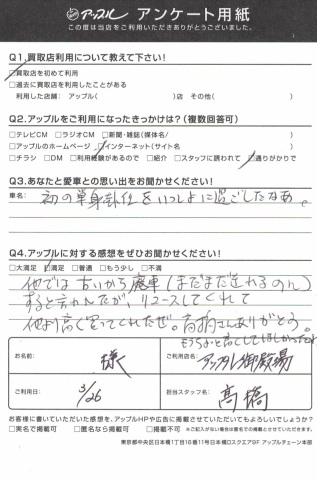 アップル アンケート用紙
この度は当店をご利用いただきありがとうございました。
Q1.買取店利用について教えて下さい!
□買取店を初めて利用
□過去に買取店を利用したことがある
利用した店舗: アップル( )店 その他( )
Q2.アップルをご利用になったきっかけは?(複数回答可)
□テレビCM □ラジオCM □新聞・雑誌(媒体名/ )
□アップルのホームページ □インターネット(サイト名 )
□チラシ □DM □利用経験があるので □紹介 □スタッフに誘われて □通りがかりで
Q3.あなたと愛車との思い出をお聞かせください!
車名:
初の単身赴任をいっしょに過ごしたなあ。
Q4.アップルに対する感想をぜひお聞かせください!
□大満足 □満足 □普通 □もう少し □不満
他では古いから廃車(まだまだ走れるのに)
すると言われたが、リユースしてくれて
他より高く買ってくれたぜ。高橋さんありがとう。
お名前: 様
ご利用店名: アップル御殿場
ご利用日: 3/26
担当スタッフ名: 高橋
お客様に書いていただいた感想を、アップルHPや広告に掲載させていただいてもよろしいでしょうか?
□実名で掲載可 □匿名なら掲載可 □掲載不可 ※ご記入がない場合は匿名での掲載とさせていただきます。
東京都中央区日本橋1丁目16番11号日本橋Dスクエア9F アップルチェーン本部